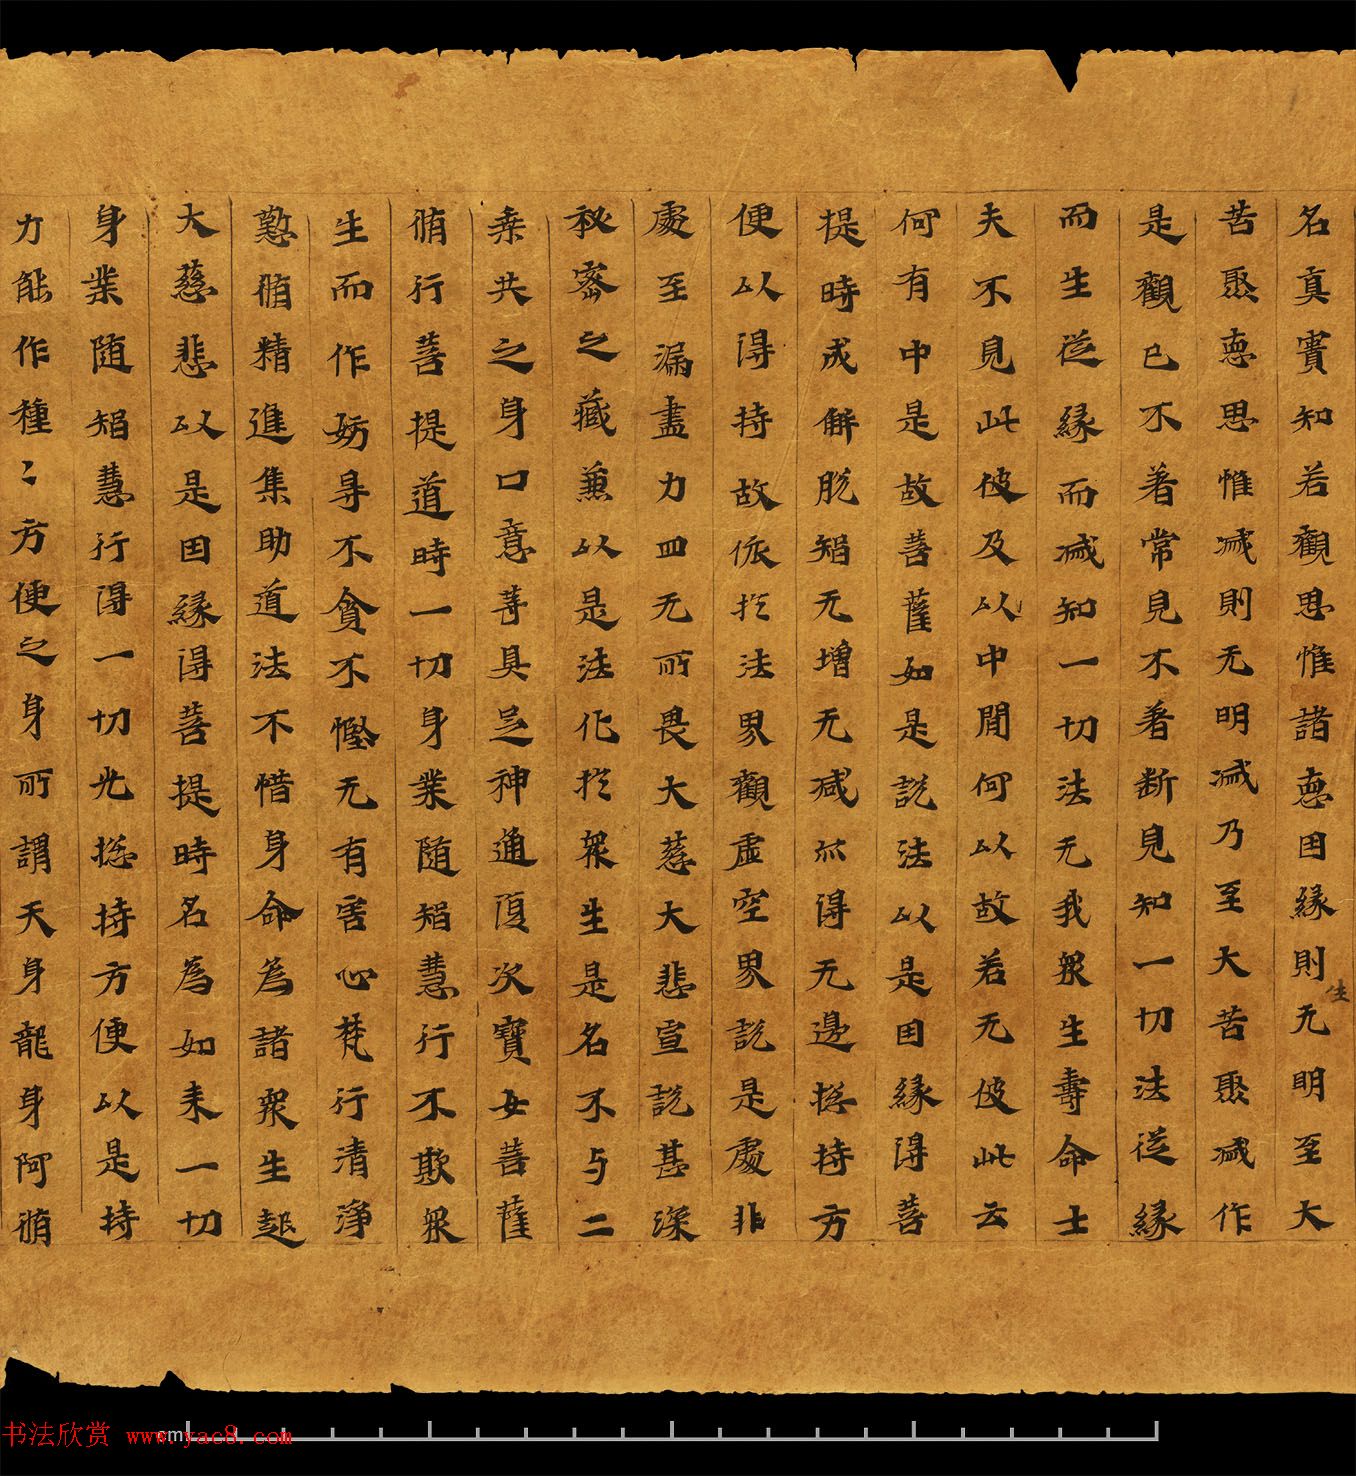 名真實知若觀思惟諸惡因緣則无明至大
生
苦聚惡思惟滅則无明滅乃至大苦聚滅作
是觀已不著常見不著断見知一切法從緣
而生從緣而滅知一切法无我衆生壽命士
夫不見此彼及以中間何以故若无彼此云
何有中是故菩薩如是説法以是因緣得菩
提時成解脱智无增无减亦得无邊揔持方
便以得持故依於法界觀虛空界説是處非
處至漏盡力四无所畏大慈大悲宣説甚深
秘密之藏兼以是法化於衆生是名不与二
乘共之身口意等具足神通復次寶女菩薩
脩行菩提道時一切身業随智慧行不欺衆
生而作妨㝵不貪不慳无有害心梵行清淨
懃脩精進集助道法不惜身命為諸衆生起
大慈悲以是因緣得菩提時名為如来一切
身業随智慧行得一切光揔持方便以是持
力能作種〻方便之身所謂天身龍身阿脩
cm
书法欣赏 www.yac8.com